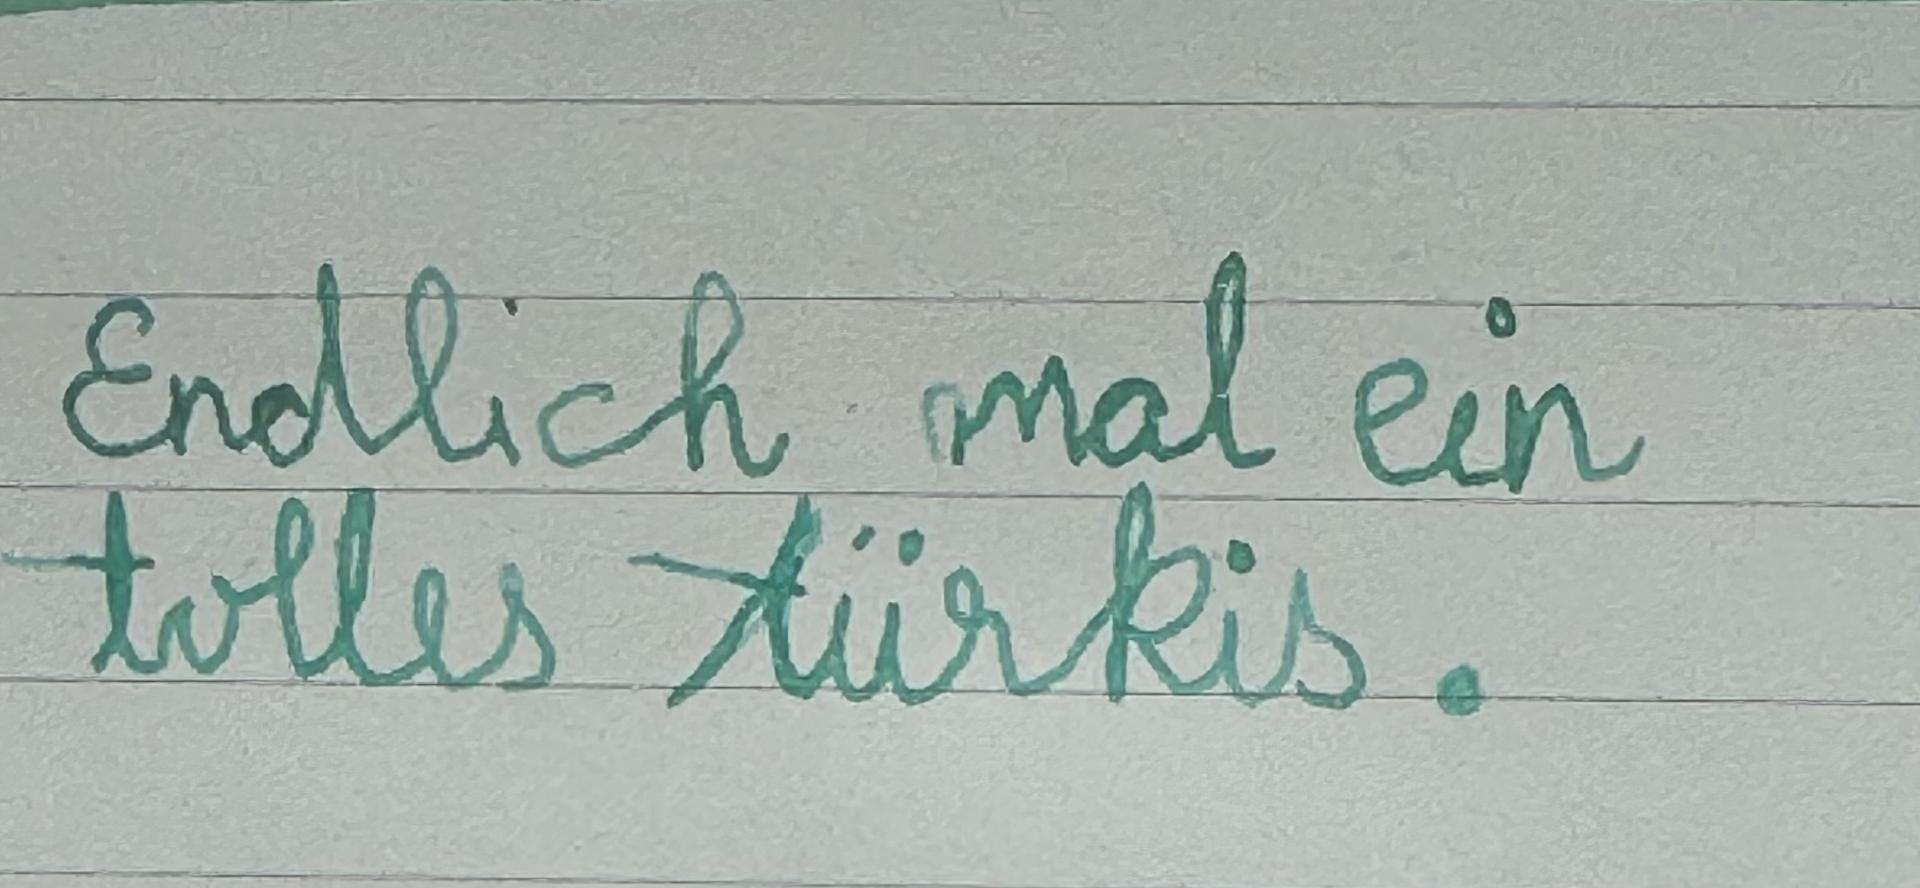 Endlich mal ein
tolles türkis.